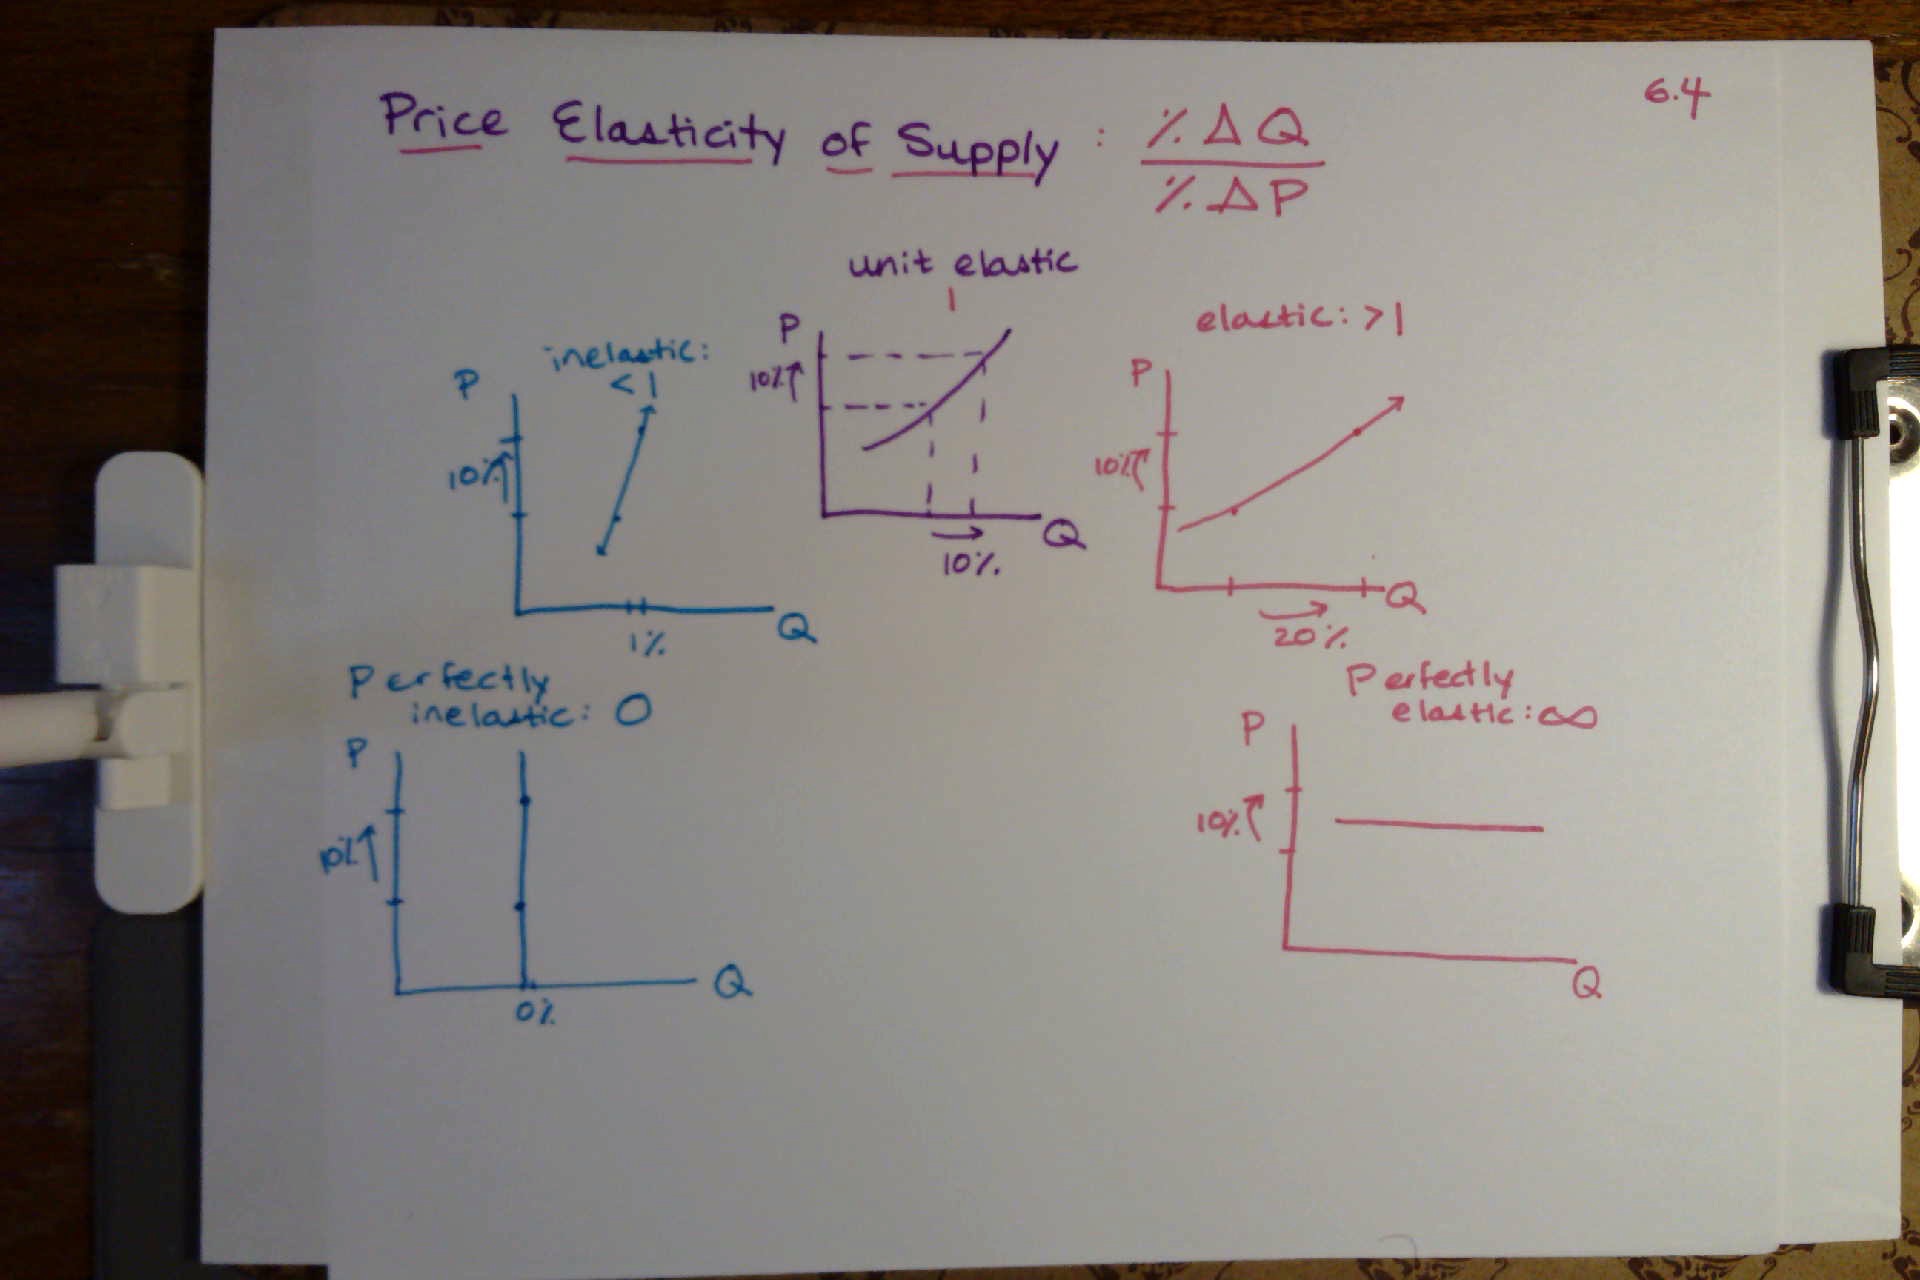 6.4
Price Elasticity of Supply : % Δ Q
% Δ P
unit elastic
1
P
10% ↑
Q
→
10%
inelastic:
< 1
P
10% ↑
1%
Q
elastic: > 1
P
10% ↑
Q
→
20%
Perfectly
inelastic: 0
P
10% ↑
Q
0%
Perfectly
elastic: ∞
P
10% ↑
Q